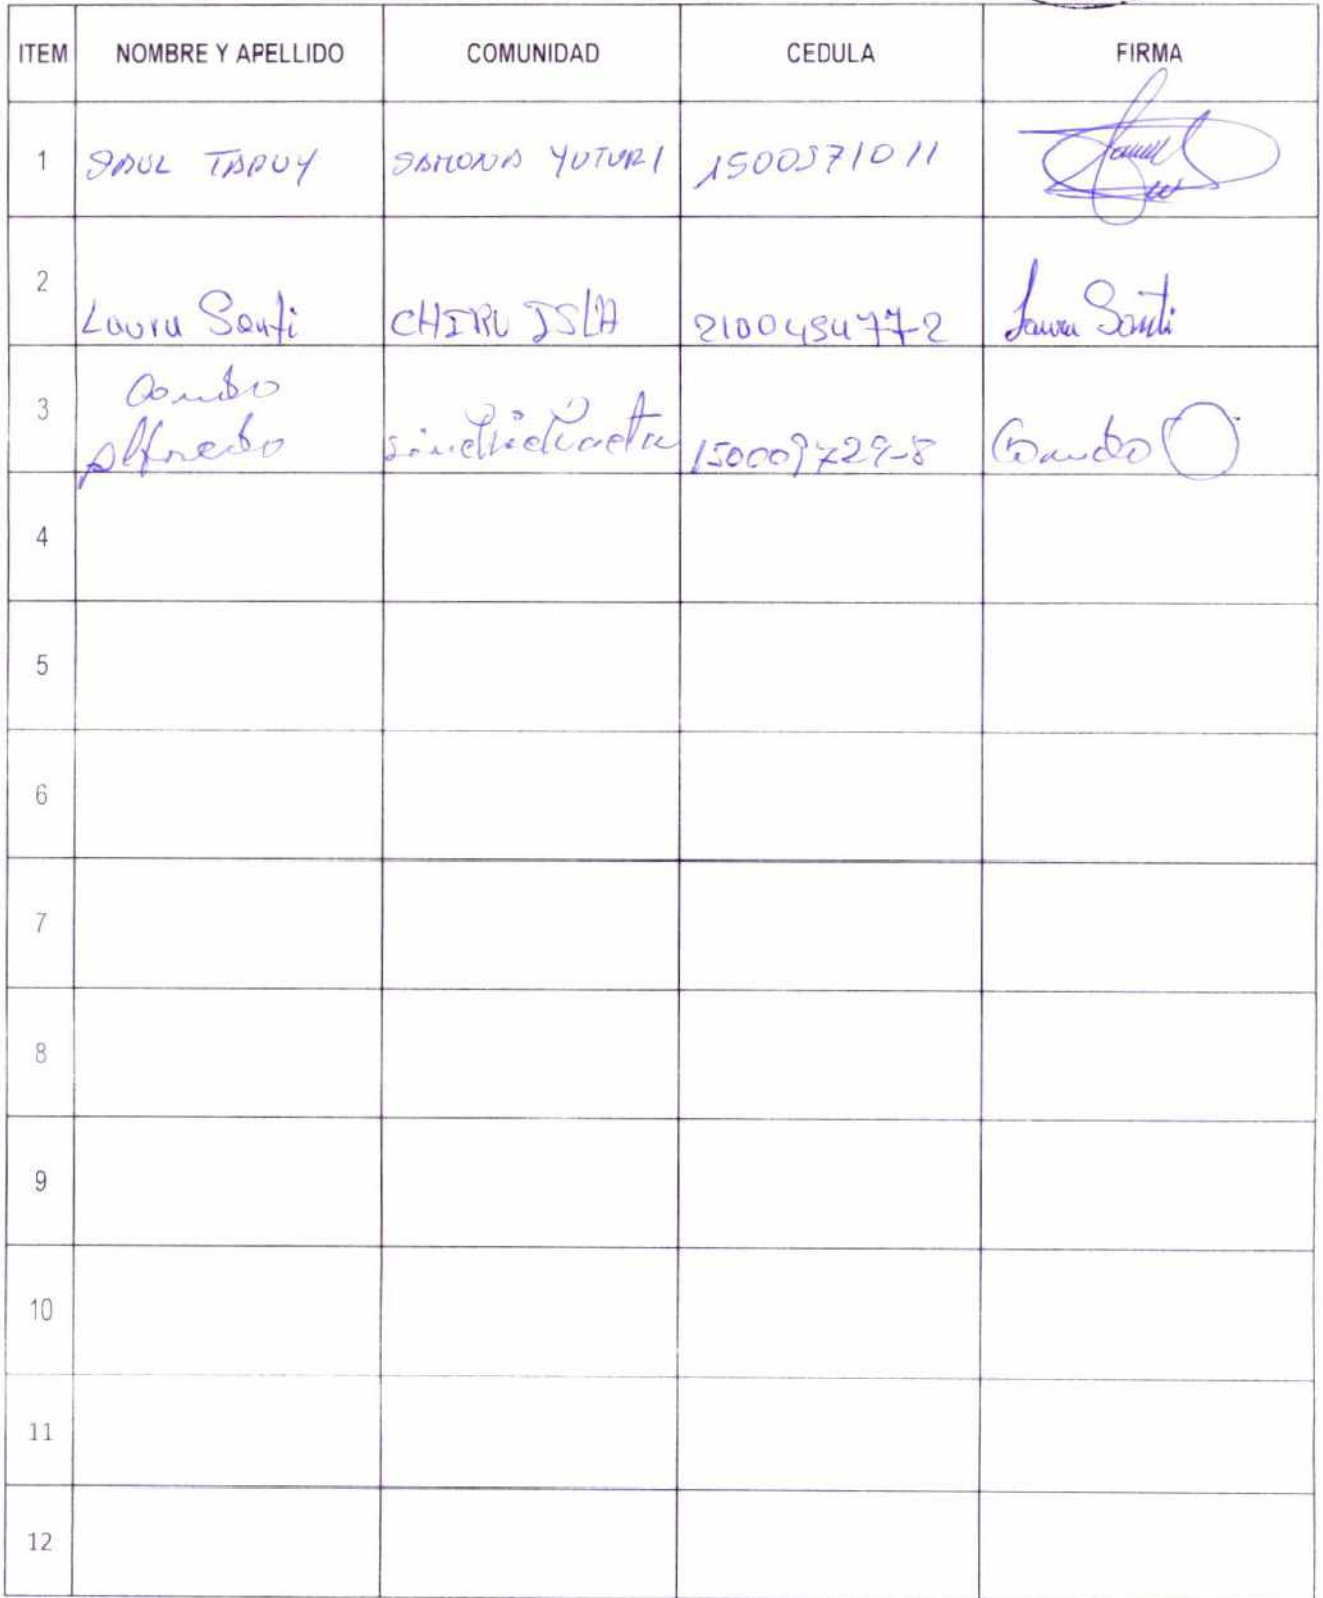 ITEM NOMBRE Y APELLIDO COMUNIDAD CEDULA FIRMA
1 SAUL TAPUY SAMONA YUTURI 1500371011
2 Laura Santi CHIRU ISLA 210045477-2 Laura Santi
3
Alfredo 150009729-8
4
5
6
7
8
9
10
11
12